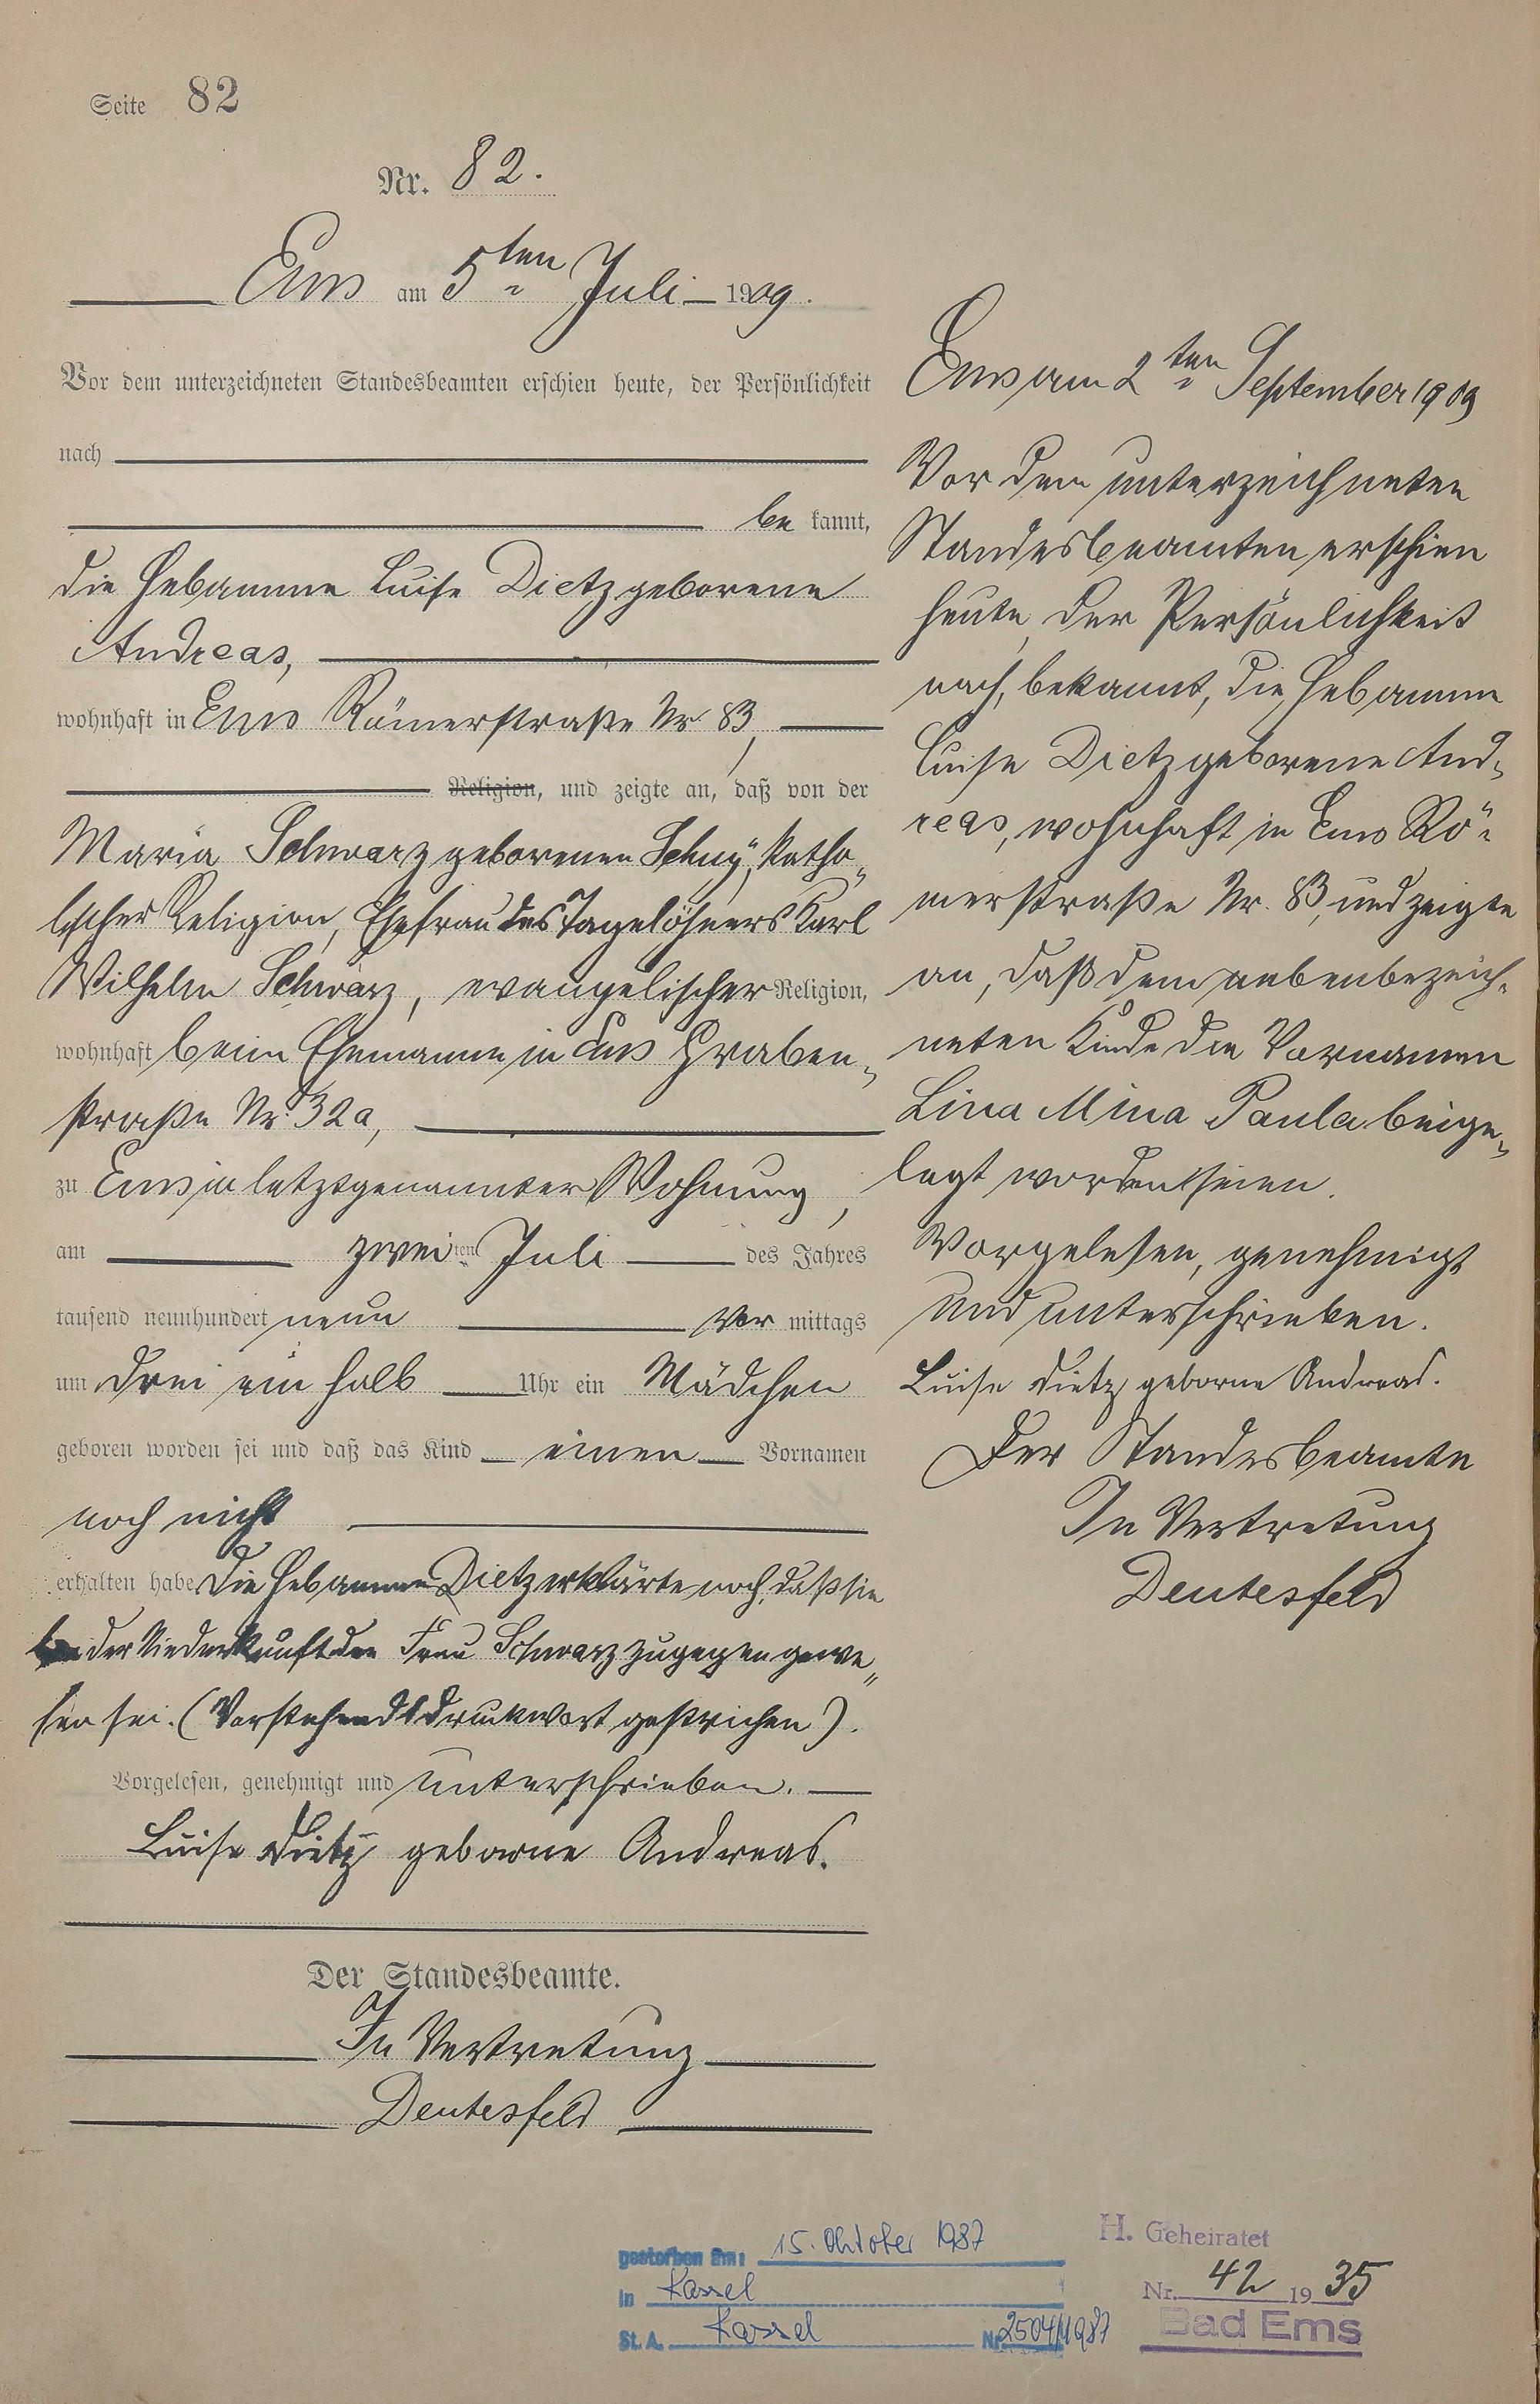 Seite 82
Nr. 82.
Ems am 5ten Juli 1909.
Vor dem unterzeichneten Standesbeamten erschien heute, der Persönlichkeit
nach
be kannt,
die Hebamme Luise Dietz geborene
Andreas,
wohnhaft in Ems Römerstraße Nr. 83,
Religion, und zeigte an, daß von der
Maria Schwarz geborenen Schuy, katho„
lischer Religion, Ehefrau des Tagelöhners Karl
Wilhelm Schwarz, evangelischer Religion,
wohnhaft beim Ehemanne in Ems Graben„
straße Nr. 32a,
zu Ems in letztgenannter Wohnung,
am zweiten Juli des Jahres
tausend neunhundert neun Vor mittags
um drei ein halb Uhr ein Mädchen
geboren worden sei und daß das Kind einen Vornamen
noch nicht
erhalten habe. Die Hebamme Dietz erklärte noch, daß sie
bei der Niederkunft der Frau Schwarz zugegen gewe„
sen sei. (Vorstehend 1 Druckwort gestrichen).
Vorgelesen, genehmigt und unterschrieben.
Luise Dietz geborne Andreas.
Der Standesbeamte.
In Vertretung
Deutesfeld
Ems am 2ten September 1909
Vor dem unterzeichneten
Standesbeamten erschien
heute, der Persönlichkeit
nach, bekannt, die Hebamme
Luise Dietz geborene And„
reas, wohnhaft in Ems Rö„
merstraße Nr. 83, und zeigte
an, daß dem nebenbezeich„
neten Kinde die Vornamen
Lina Mina Paula beige„
legt worden seien.
Vorgelesen, genehmigt
und unterschrieben.
Luise Dietz geborne Andreas.
Der Standesbeamte
In Vertretung
Deutesfeld
gestorben am: 15. Oktober 1987
in Kassel
St. A. Kassel Nr. 2504/1987
H. Geheiratet
Nr. 42 1935
Bad Ems